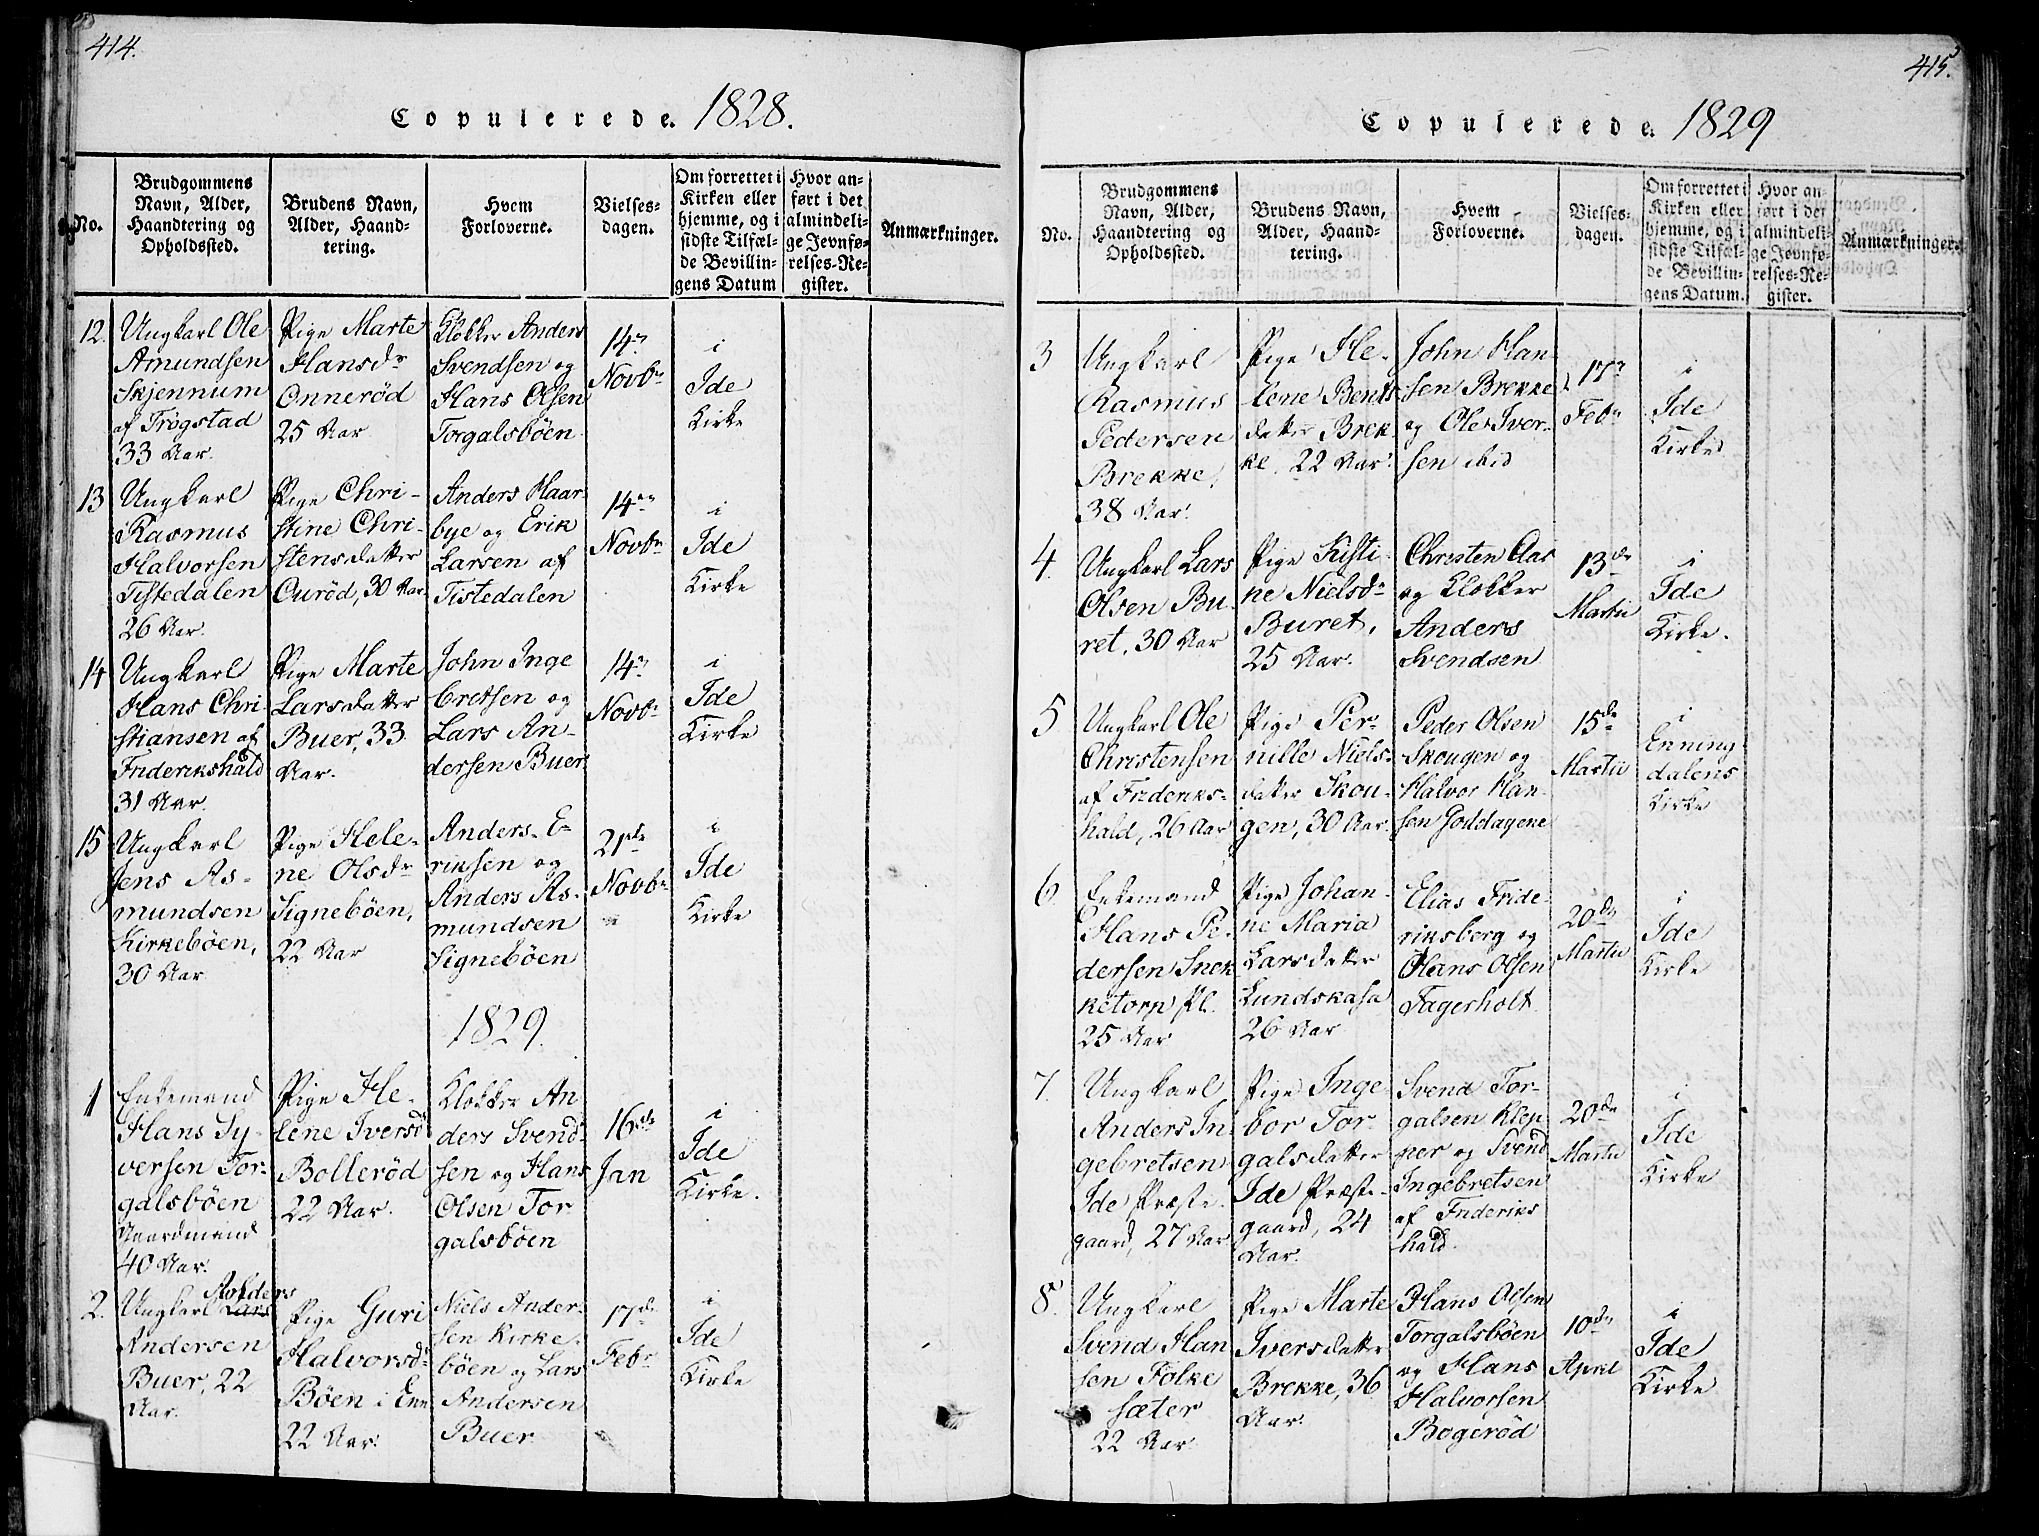 414.
Copulerede. 1828.
No.
Brudgommens
Navn, Alder,
Haandtering og
Opholdssted.
Brudens Navn,
Alder, Haand-
tering.
Hvem
Forloverne.
Vielses-
dagen.
Om forrettet i
Kirken eller
hjemme, og i
sidste Tilfæl-
de Bevillin-
gens Datum
Hvor an-
ført i det
almindeli-
ge Jevnfø-
relses-Re-
gister.
Anmærkninger.
12.
Ungkarl Ole
Amundsen
Skjennum
af Trøgstad
33 Aar.
Pige Marte
Hansdr
Onnerød
25 Aar
Klokker Anders
Svendsen og
Hans Olsen
Torgalsbøen
14de
Novbr
i
Ide
Kirke
13
Ungkarl
Rasmus
Halvorsen
Tistedalen
26 Aar.
Pige Chri-
stine Chri-
stensdatter
Ourød, 30 Aar
Anders Haar-
bye og Erik
Larsen af
Tistedalen
14de
Novbr
i
Ide
Kirke
14
Ungkarl
Hans Chri
stiansen af
Friderikshald
31 Aar.
Pige Marte
Larsdatter
Buer, 33
Aar.
John Inge
bretsen og
Lars An-
dersen Buer
14de
Novbr
i
Ide
Kirke
15
Ungkarl
Jens As-
mundsen
Kirkebøen,
30 Aar
Pige Hele-
ne Olsdr
Signebøen,
22 Aar
Anders E-
riksen og
Anders As-
mundsen
Signebøen
21de
Novbr
i
Ide
Kirke
1829.
1
Enkemand
Hans Sy-
versen Tor-
galsbøen
Gaardmand
40 Aar.
Pige He-
lene Iversd
Bollerød
22 Aar.
Klokker An
ders Svend-
sen og Hans
Olsen Tor
galsbøen
16de
Jan
i
Ide
Kirke.
2.
Anders
Ungkarl Lars
Andersen
Buer, 22
Aar.
Pige Guri
Halvorsdr
Bøen i Enn
22 Aar.
Niels Ander-
sen Kirke-
bøen og Lars
Andersen
Buer
17de
Febr
i
Ide
Kirke
415.
Copulerede. 1829
No.
Brudgommens
Navn, Alder,
Haandtering og
Opholdssted.
Brudens Navn,
Alder, Haand-
tering.
Hvem
Forloverne.
Vielses-
dagen.
Om forrettet i
Kirken eller
hjemme, og i
sidste Tilfæl-
de Bevillin-
gens Datum.
Hvor an-
ført i det
almindeli-
ge Jevnfø-
relses-Re-
gister.
Anmærkninger.
3
Ungkarl
Rasmus
Pedersen
Brekke,
38 Aar.
Pige He-
lene Bents
datter Brek
ke, 22 Aar.
John Han-
sen Brekke
og Ole Iver-
sen ibid
17de
Febr
i
Ide
Kirke
4.
Ungkarl Lars
Olsen Bu-
ret, 30 Aar
Pige Kisti-
ne Nielsdr
Buret,
25 Aar.
Christen Aas
og Klokker
Anders
Svendsen
13de
Martii
i
Ide
Kirke.
5
Ungkarl Ole
Christensen
af Frideriks-
hald, 26 Aar
Pige Per-
nille Niels-
datter Skou-
gen, 30 Aar
Peder Olsen
Skougen og
Halvor Han-
sen Goddagene
15de
Martii
i
Enning
dalens
Kirke
6
Enkemand
Hans Pe-
dersen Snek
ketorp Pl.
25 Aar
Pige Johan-
ne Maria
Larsdatter
Lundskasa
26 Aar
Elias Fride-
riksberg og
Hans Olsen
Fagerholt
20de
Martii
i
Ide
Kirke
7.
Ungkarl
Anders In-
gebretsen
Ide Præste-
gaard, 27 Aar
Pige Inge-
bor Tor-
galsdatter
Ide Præste-
gaard, 24
Aar.
Svend Tor-
galsen Klep
ner og Svend
Ingebretsen
af Frideriks
hald.
20de
Martii
i
Ide
Kirke
8.
Ungkarl
Svend Han
sen Folke
sæter
22 Aar
Pige Marte
Iversdatter
Brekke, 36
Aar.
Hans Olsen
Torgalsbøen
og Hans
Halvorsen
Bogerød
10de
April
i
Ide
Kirke